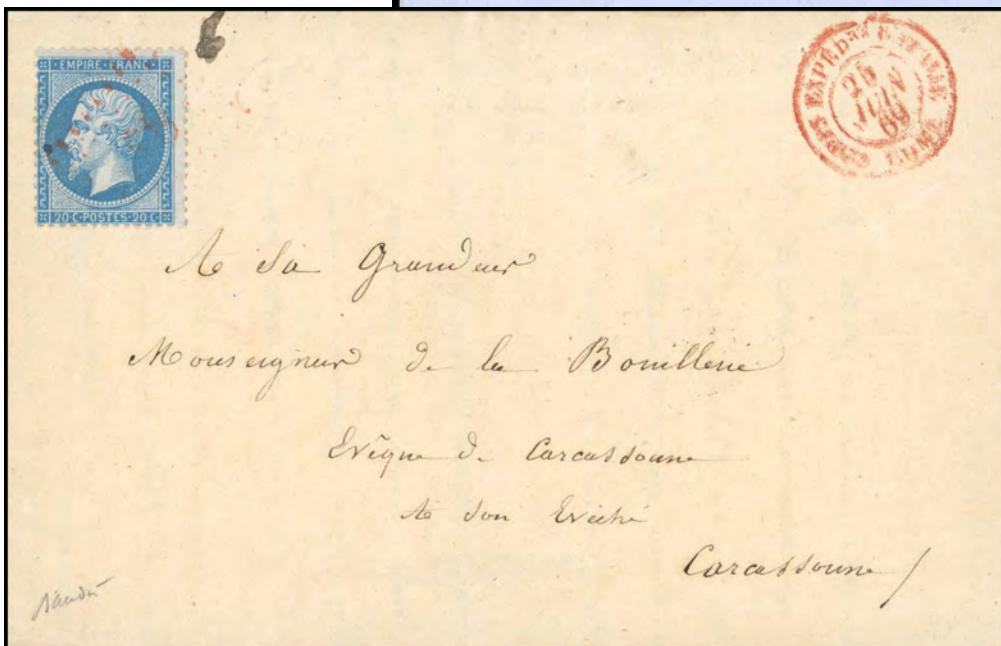 EMPIRE·FRANC·
20 C·POSTES·20 C
CORPS EXPED.RE D'ITALIE
25
JUIN
69
ROME
A Sa Grandeur
Monseigneur de la Bouillerie
Evêque de Carcassonne
A son Evêché
Carcassonne /